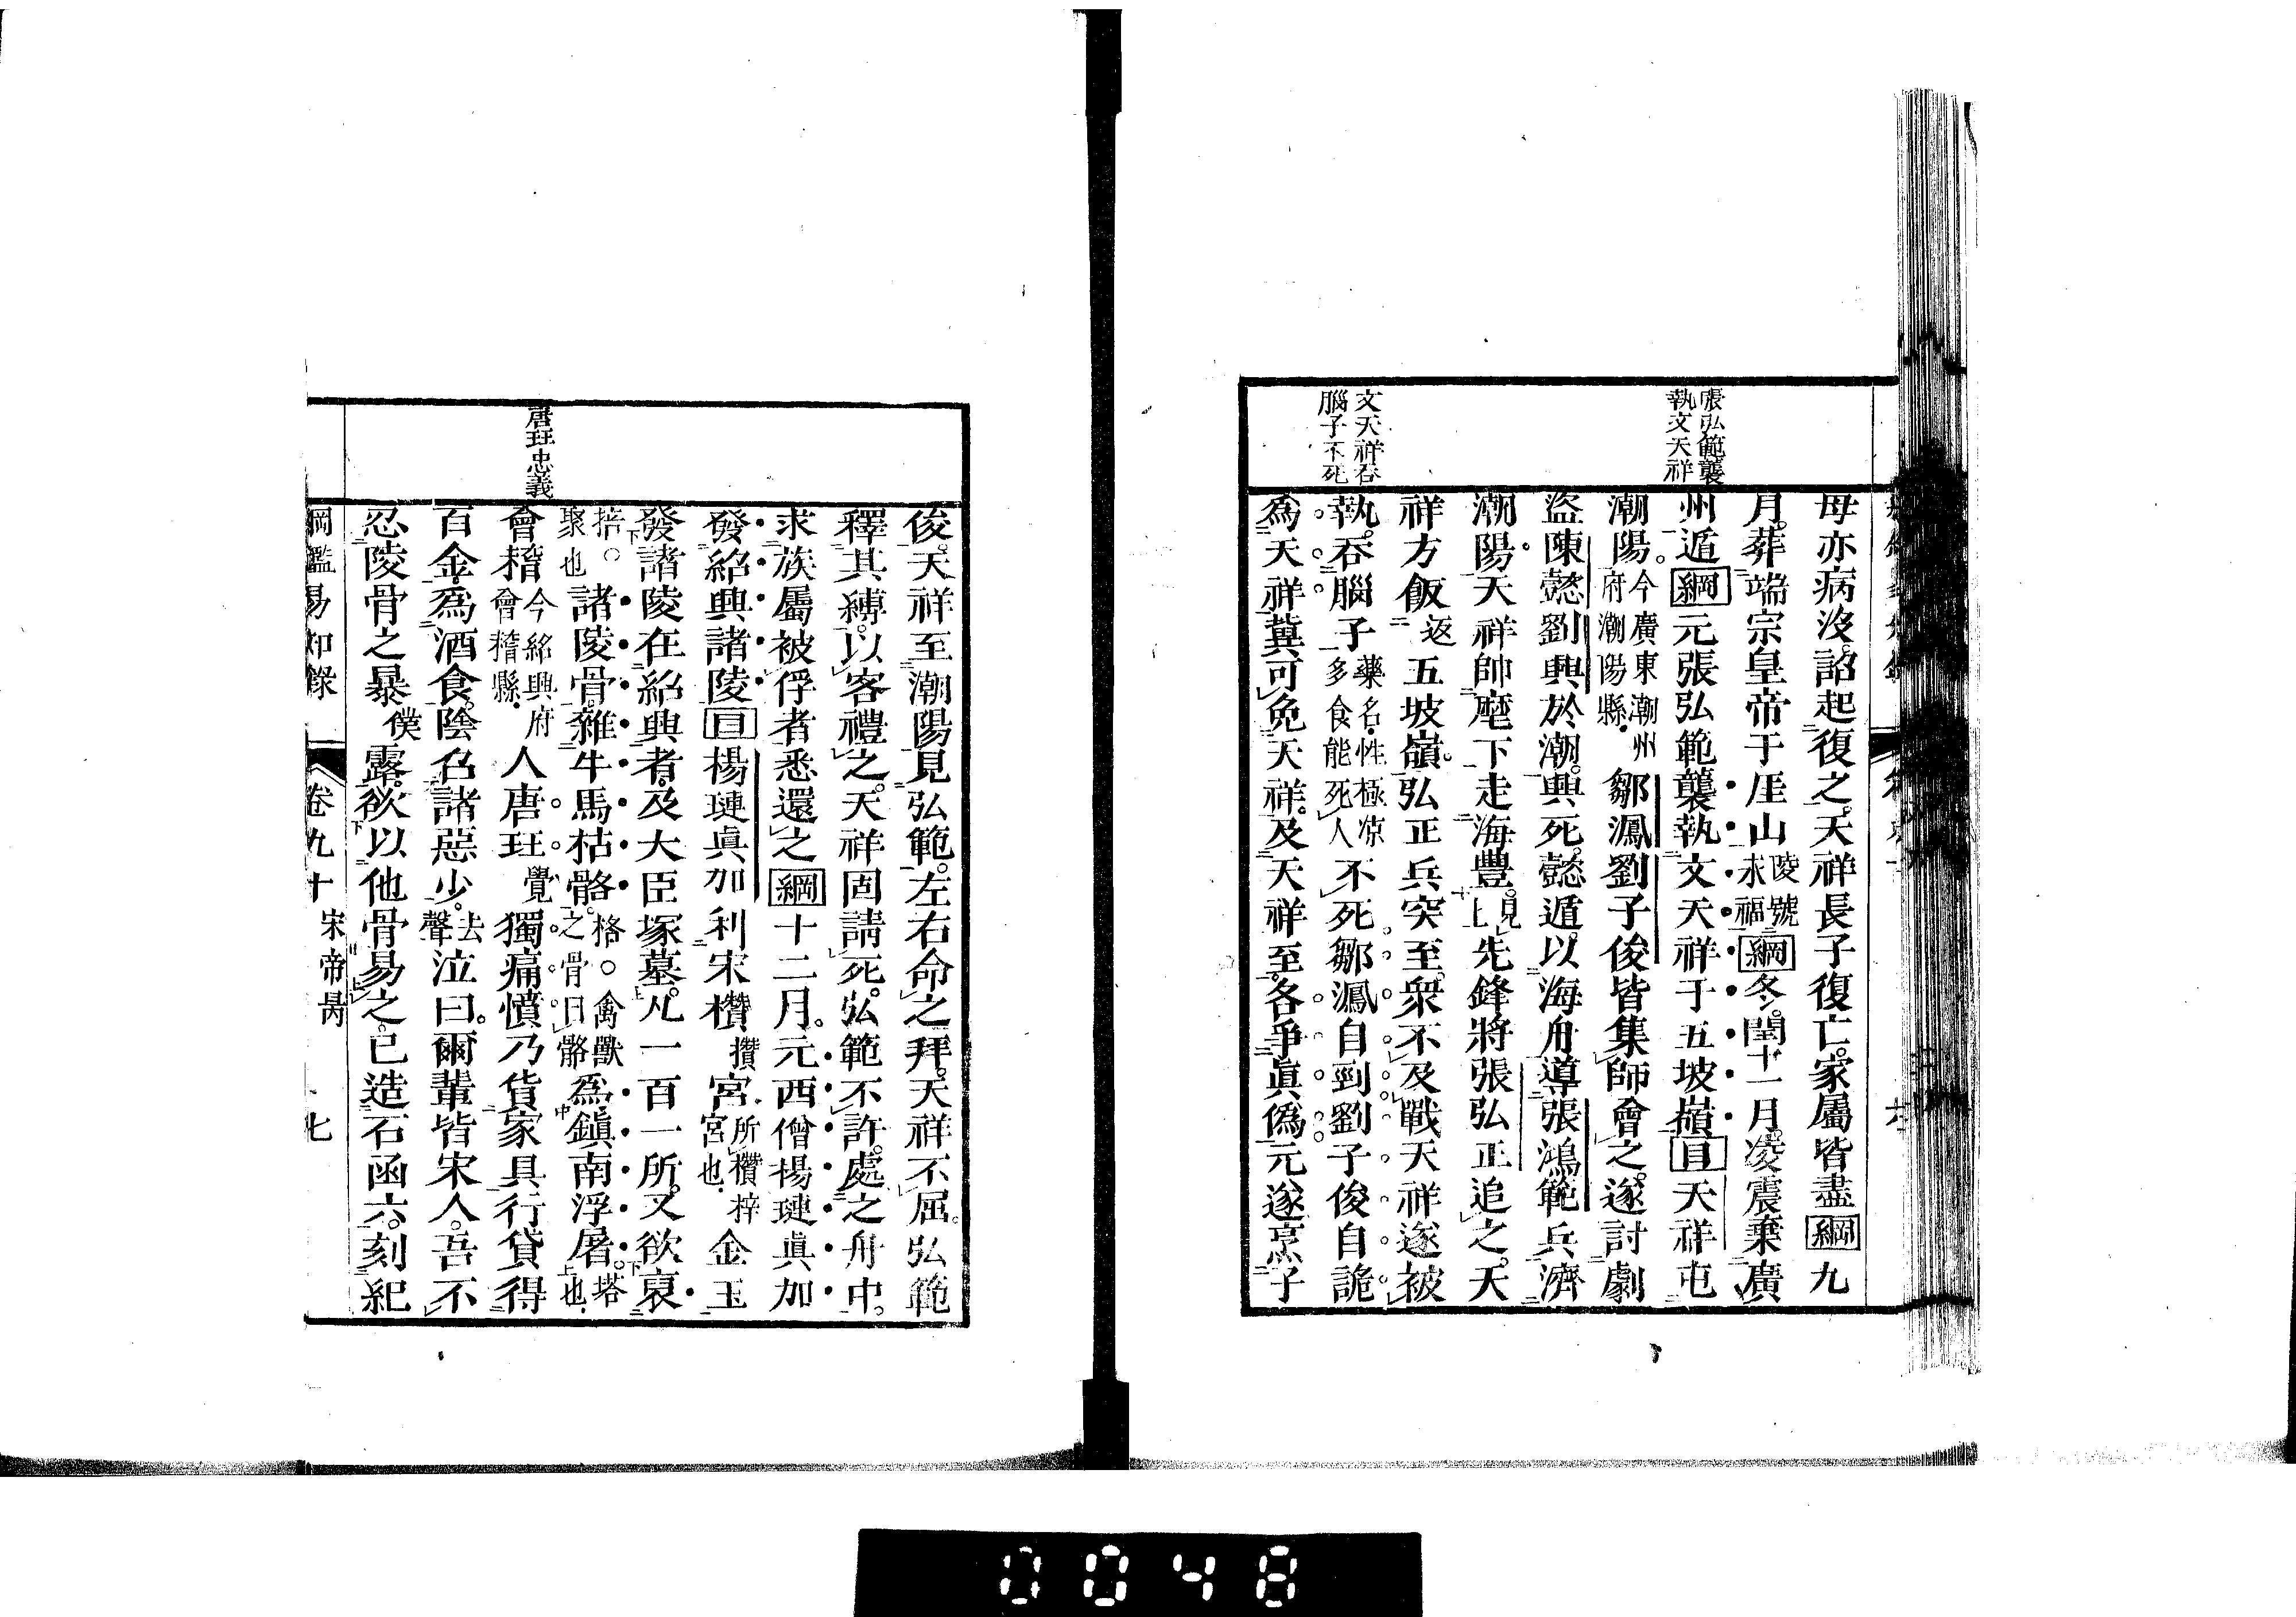 張弘範襲
執文天祥
文天祥吞
腦子不死
母亦病沒。詔起復之。天祥長子復亡。家屬皆盡綱九
月。葬端宗皇帝于厓山陵號永福綱冬。閏十一月。凌震棄廣
州遁綱元張弘範襲執文天祥于五坡嶺目天祥屯
潮陽。今廣東潮州府潮陽縣鄒㵯劉子俊皆集師會之。遂討劇
盜陳懿劉興於潮。興死。懿遁。以海舟導張鴻範兵濟
潮陽。天祥帥麾下走海豐。見上先鋒將張弘正追之。天
祥方飯返五坡嶺。弘正兵突至。衆不及戰天祥遂被
執。吞腦子藥名性極凉多食能死人不死鄒㵯自剄劉子俊自詭
為天祥冀可免天祥。及天祥至。各爭眞僞元遂烹子
唐珏忠義
俊。天祥至潮陽見弘範。左右命之拜。天祥不屈。弘範
釋其縛。以客禮之。天祥固請死。弘範不許。處之舟中。
求族屬被俘者悉還之綱十二月。元西僧楊璉眞加
發紹興諸陵目楊璉眞加利宋欑攢宮所欑梓宮也金玉
發諸陵在紹興者。及大臣塚墓。凡一百一所。又欲裒
掊○聚也諸陵骨。雜牛馬枯骼。格○禽獸之骨曰骼爲鎭南浮屠。塔也
會稽今紹興府會稽縣人唐珏覺獨痛憤乃貨家具行貸得
百金。爲酒食。陰召諸惡少。去聲泣曰。爾輩皆宋人。吾不
忍陵骨之暴僕露。欲以他骨易之。已造石函六。刻紀
綱鑑易知錄 卷九十 宋帝昺 七